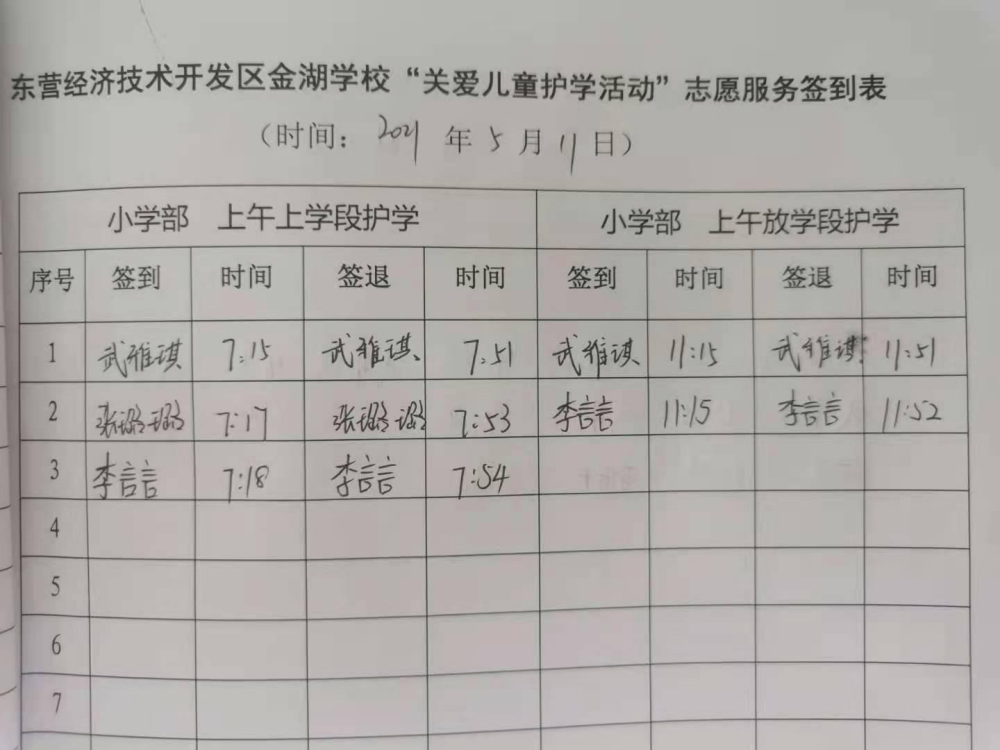 东营经济技术开发区金湖学校“关爱儿童护学活动”志愿服务签到表
（时间：2021年5月11日）
小学部 上午上学段护学 小学部 上午放学段护学
序号 签到 时间 签退 时间 签到 时间 签退 时间
1 武雅琪 7:15 武雅琪 7:51 武雅琪 11:15 武雅琪 11:51
2 张璐璐 7:17 张璐璐 7:53 李言言 11:15 李言言 11:52
3 李言言 7:18 李言言 7:54
4
5
6
7